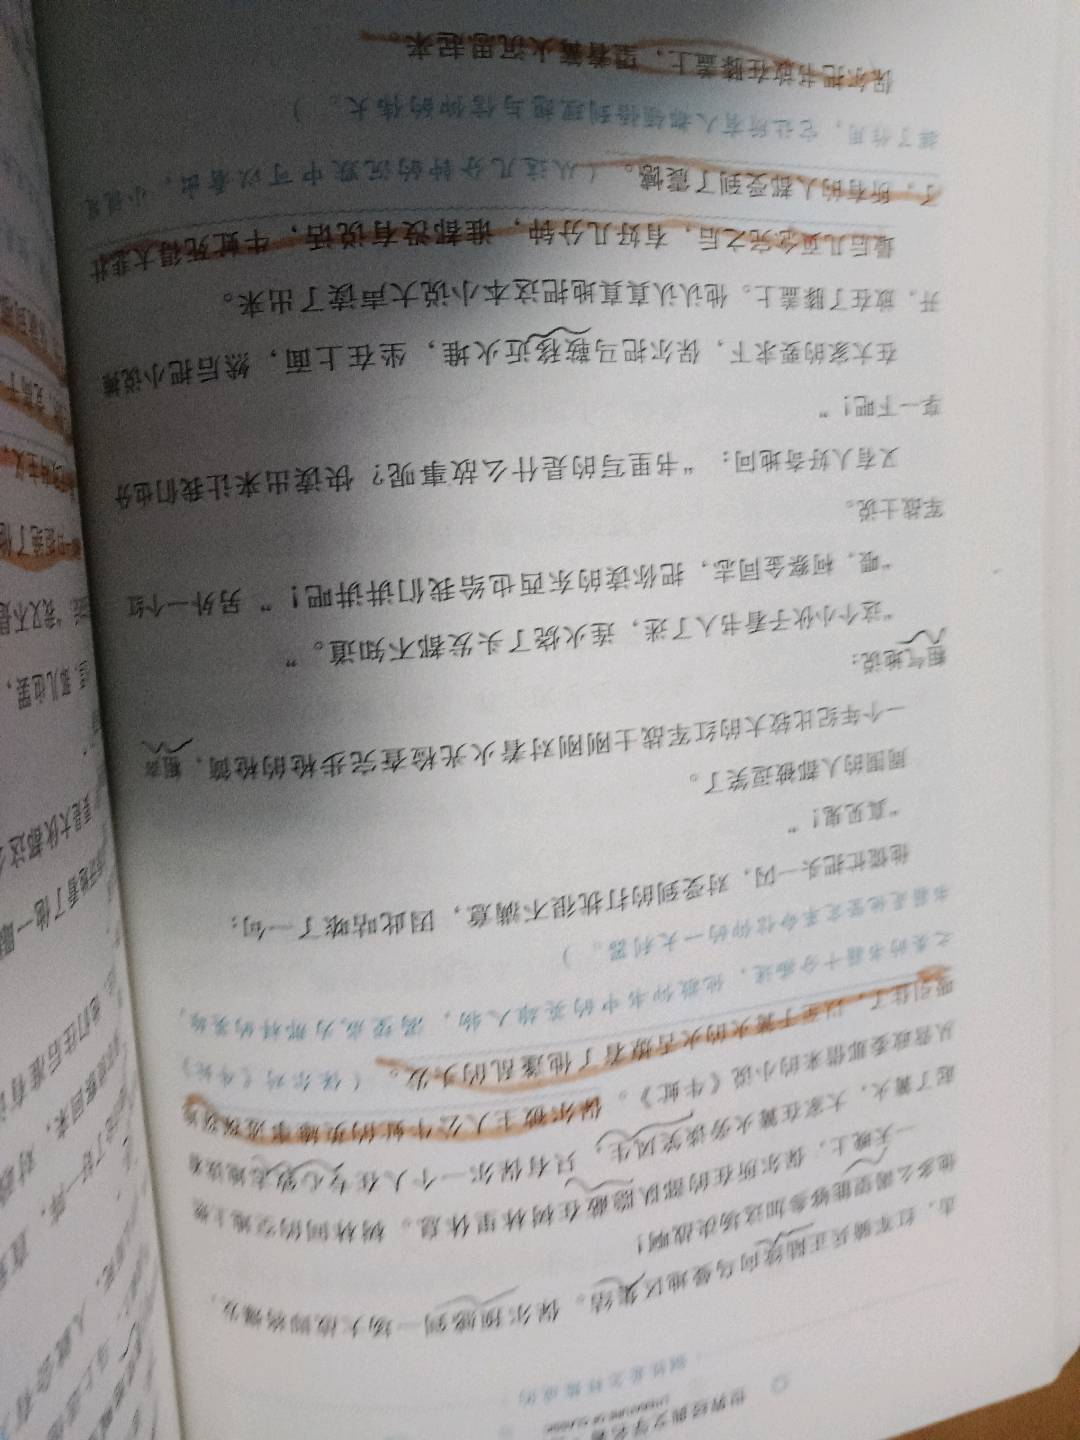 世界经典文学名著
LITERATURE OF CLASSIC
钢铁是怎样炼成的
击，红军骑兵正陆续向乌曼地区集结。保尔预感到一场大战即将爆发，
他多么渴望能够参加这场决战啊！
一天晚上，保尔所在的部队隐蔽在树林里休息。树林间的空地上燃
起了篝火，大家在篝火旁谈笑风生，只有保尔一个人在专心致志地读着
从营政委那借来的小说《牛虻》。保尔被主人公牛虻的英雄事迹深深地
吸引住了，以至于篝火的火舌燎着了他蓬乱的头发。（保尔对《牛虻》
之类的书籍十分痴迷，他敬仰书中的英雄人物，渴望成为那样的英雄，
书籍是他坚定革命信仰的一大利器。）
他慌忙把头一闪，对受到的打扰很不满意，因此咕哝了一句：
“真见鬼！”
周围的人都被逗笑了。
一个年纪比较大的红军战士刚刚对着火光检查完步枪的枪筒，粗声
粗气地说：
“这个小伙子看书入了迷，连火烧了头发都不知道。”
“喂，柯察金同志，把你读的东西也给我们讲讲吧！”另外一个红
军战士说。
又有人好奇地问：“书里写的是什么故事呢？快读出来让我们也分
享一下吧！”
在大家的要求下，保尔把马鞍移近火堆，坐在上面，然后把小说摊
开，放在了膝盖上。他认认真真地把这本小说大声读了出来。
最后几页念完之后，有好几分钟，谁都没有说话，牛虻死得太悲壮
了，所有的人都受到了震撼。（从这几分钟的沉默中可以看出，小说发
挥了作用，它让所有人都领悟到理想与信仰的伟大。）
保尔把书放在膝盖上，望着篝火沉思起来。